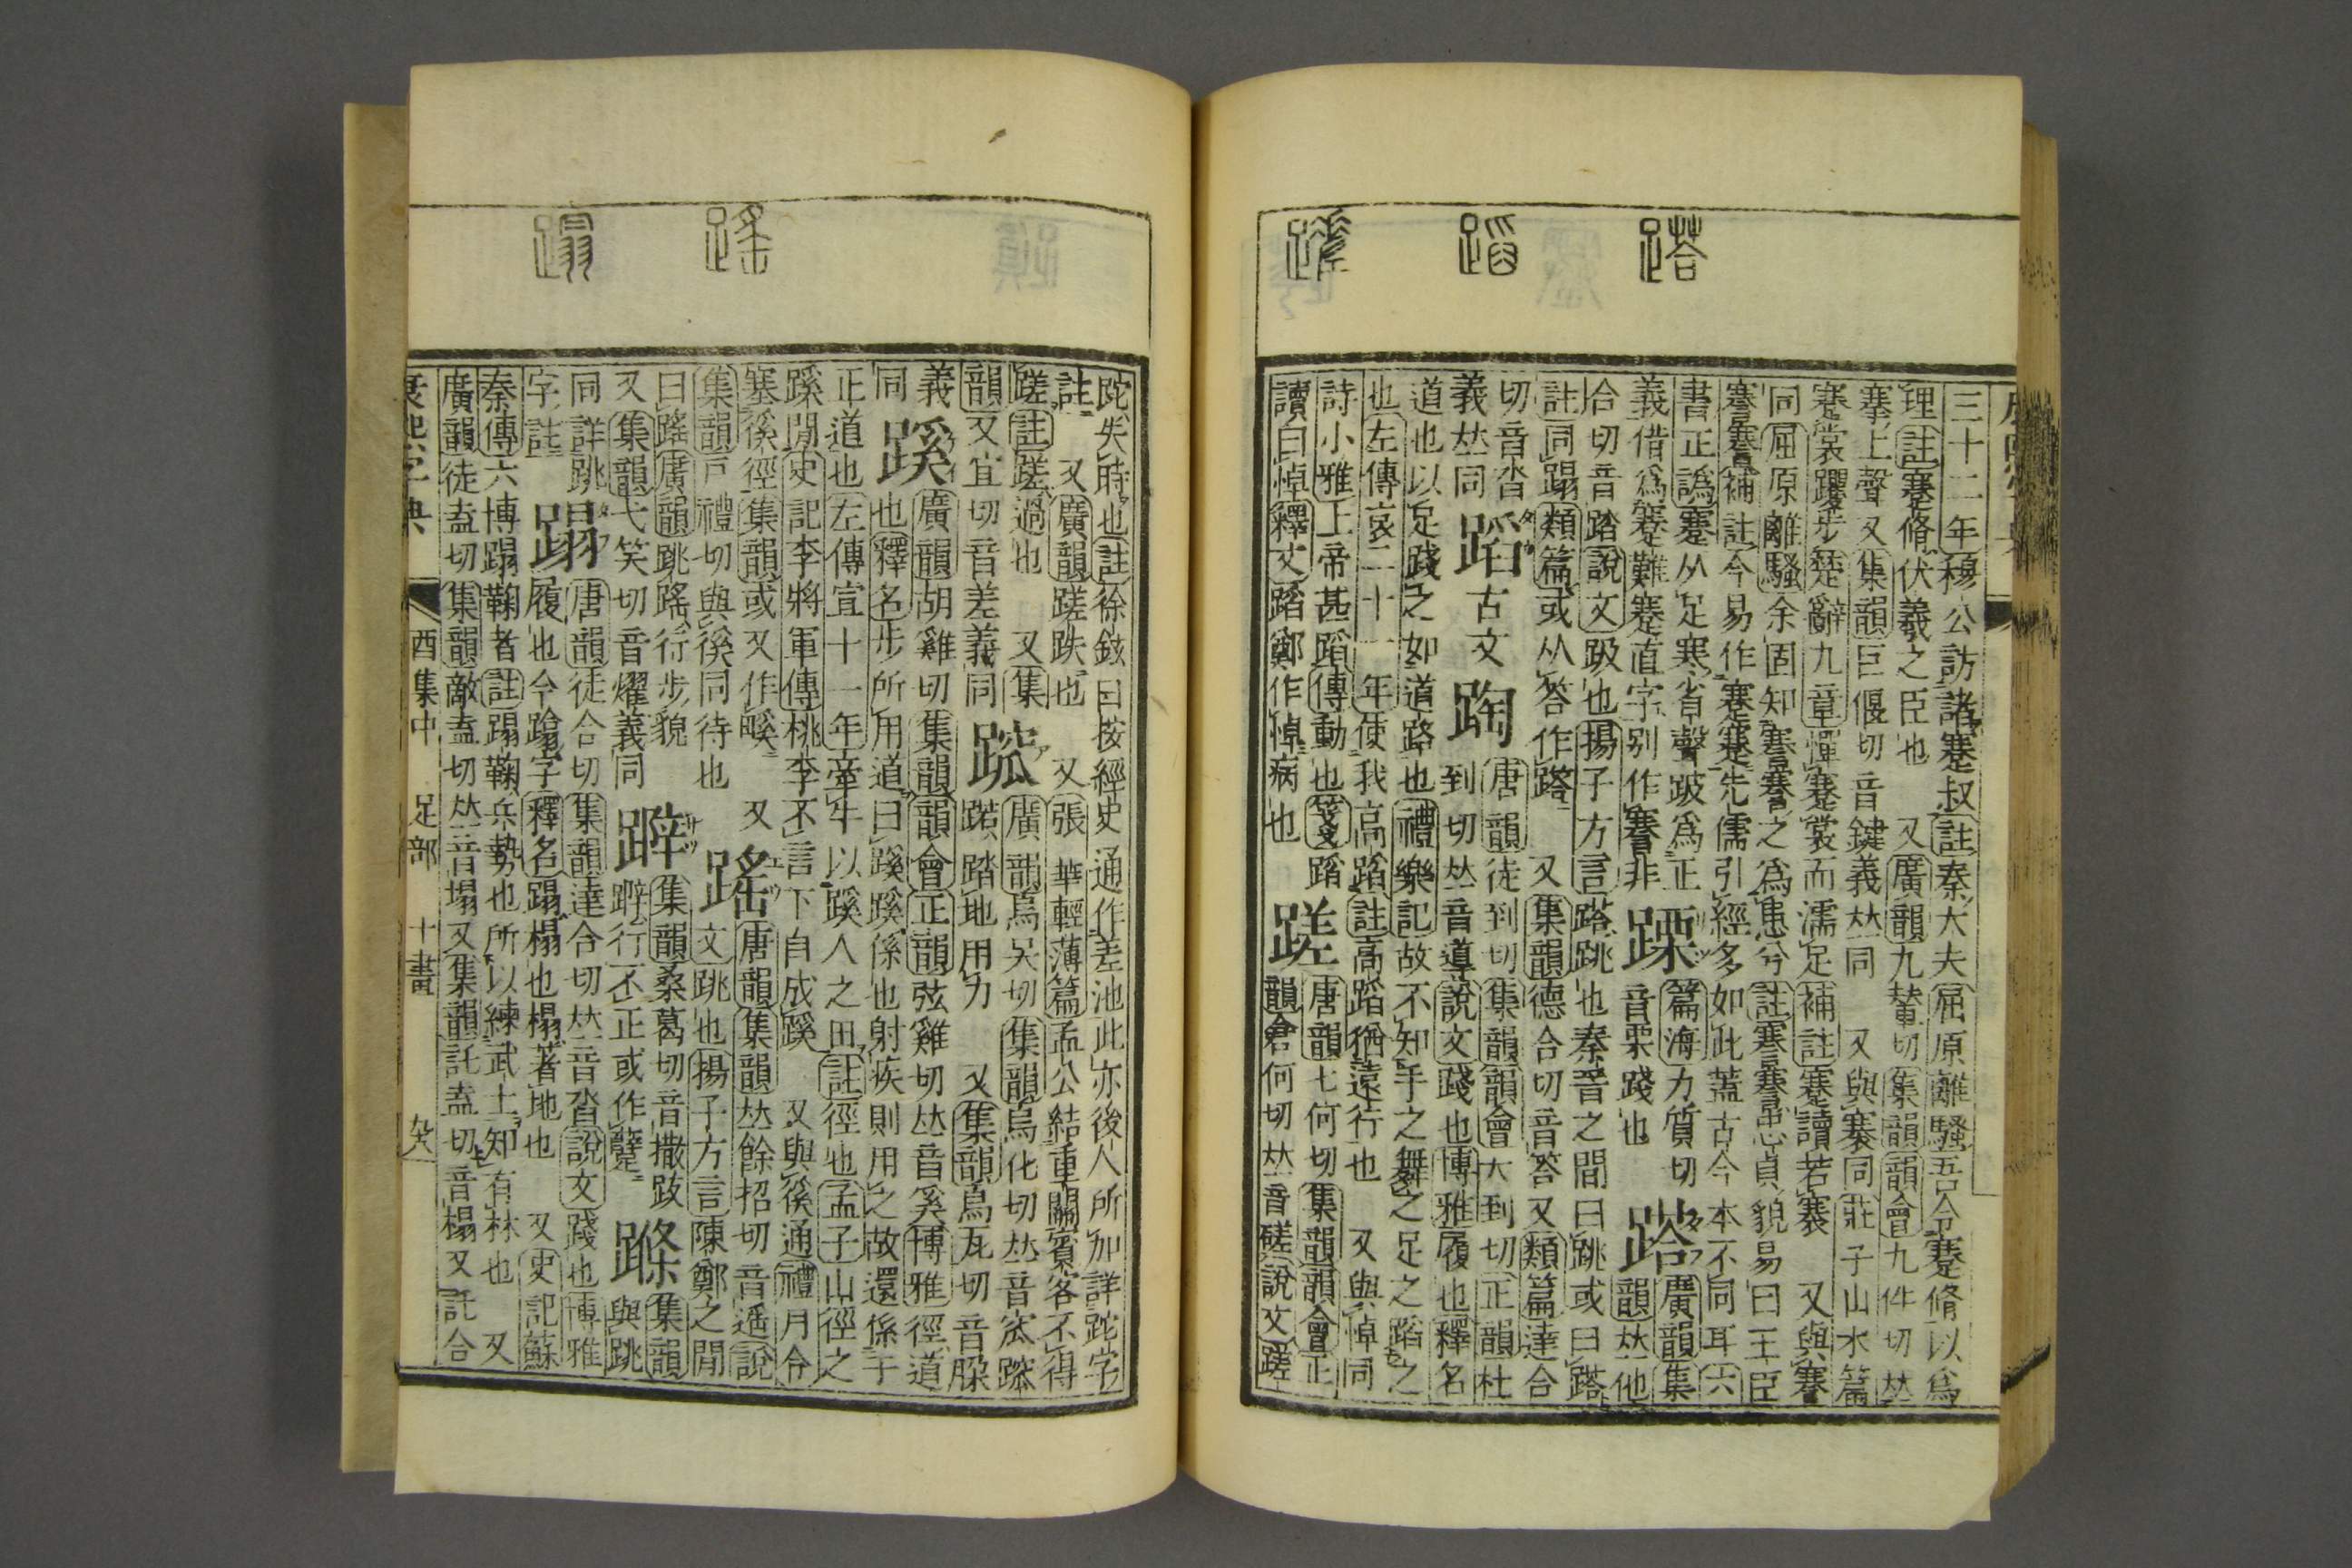 三十二年穆公訪諸蹇叔註秦大夫屈原離騷吾令蹇脩以爲
理註蹇脩伏羲之臣也 又廣韻九輦切集韻韻會九件切𠀤
搴上聲又集韻巨偃切音鍵義𠀤同 又與搴同莊子山水篇
蹇裳躩步楚辭九章憚蹇裳而濡足補註蹇讀若褰 又與謇
同屈原離騷余固知謇謇之爲患兮註謇謇忠貞貌易曰王臣
謇謇補註今易作蹇蹇先儒引經多如此蓋古今本不同耳六
書正譌蹇从足寒省聲跛爲正
義借爲蹇難蹇直字别作謇非
篇海力質切
音栗踐也
廣韻集
韻𠀤他
合切音踏說文跋也揚子方言 跳也秦晉之間曰跳或曰
註同蹋類篇或从答作 又集韻德合切音答又類篇達合
切音沓
義𠀤同
蹈 古文
唐韻徒到切集韻韻會大到切正韻杜
到切𠀤音導說文踐也博雅履也釋名
道也以足踐之如道路也禮樂記故不知手之舞之足之蹈之
也左傳哀二十一年使我高蹈註高蹈猶遠行也 又與悼同
詩小雅上帝甚蹈傳動也箋蹈
讀曰悼釋文蹈鄭作悼病也
蹉
唐韻七何切集韻韻會正
韻倉何切𠀤音磋說文蹉
跎失時也註徐鉉曰按經史通作差池此亦後人所加詳跎字
註 又廣韻蹉跌也 又張華輕薄篇孟公結重關賓客不得
蹉註蹉過也 又集
韻叉宜切音差義同
廣韻烏吴切集韻烏化切𠀤音窊
踏地用力 又集韻烏瓦切音腂
義
同
蹊
廣韻胡雞切集韻韻會正韻弦雞切𠀤音奚博雅徑道
也釋名步所用道曰蹊蹊係也射疾則用之故還係于
正道也左傳宣十一年牽牛以蹊人之田註徑也孟子山徑之
蹊閒史記李將軍傳桃李不言下自成蹊 又與徯通禮月令
塞徯徑集韻或又作 又
集韻戸禮切與徯同待也
唐韻集韻𠀤餘招切音遥說
文跳也揚子方言陳鄭之間
曰 廣韻跳 行步貌
又集韻弋笑切音燿義同
集韻桑葛切音撒跋
行不正或作躠
集韻
與跳
同詳跳
字註
蹋
唐韻徒合切集韻達合切𠀤音沓說文踐也博雅
履也今蹹字釋名蹋榻也榻著地也 又史記蘇
秦傳六博蹋鞠者註蹋鞠兵勢也所以練武士知有材也 又
廣韻徒盍切集韻敵盍切𠀤音塌又集韻託盍切音榻又託合
康熙字典 酉集中 足部 十畫